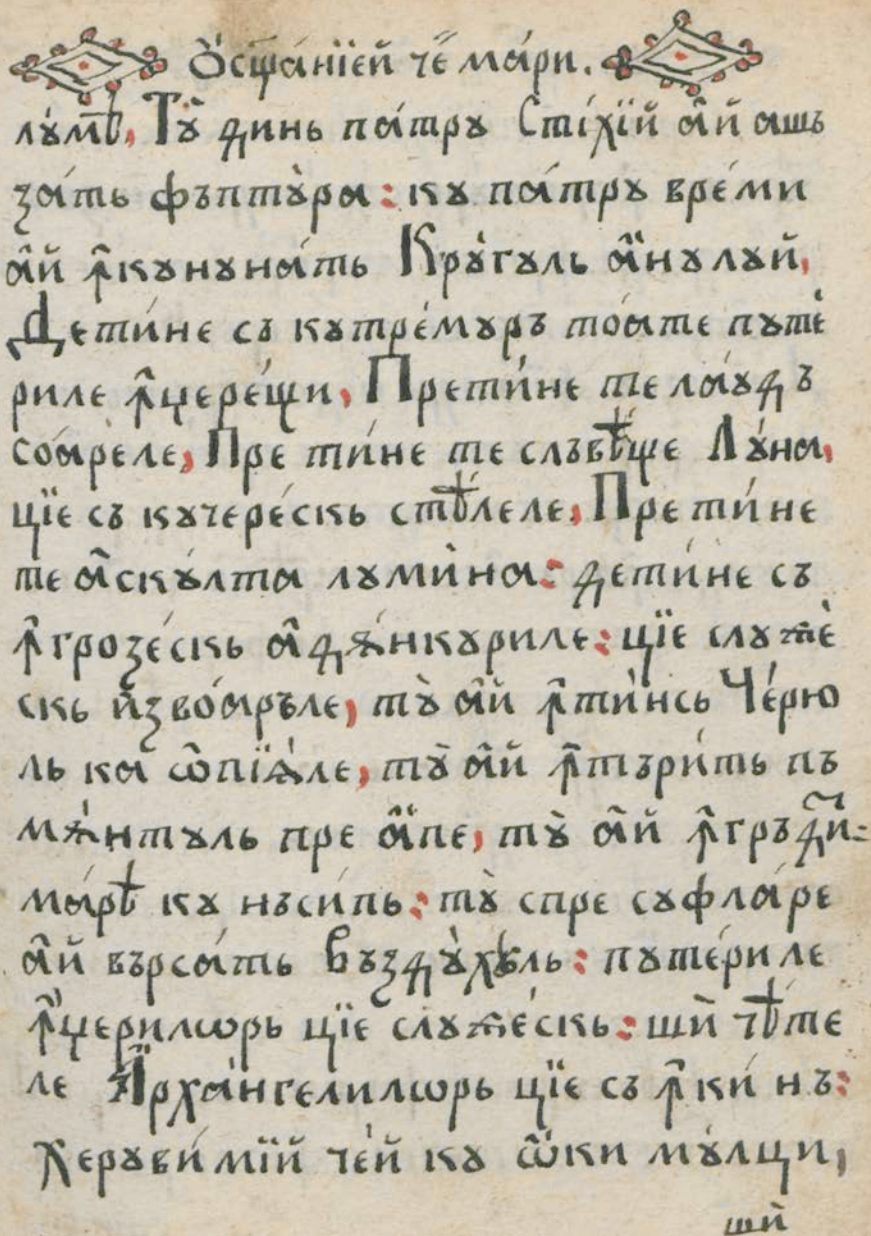 Ѻ҆сфща́нїей че҆ ма́ри.
лꙋ́мѣ, Тꙋ̀ динь па́трꙋ Стїхїй а҆й ашъ
за́ть фъптꙋ́ра: кꙋ па́трꙋ вре́ми
а҆й ꙟ҆кꙋнꙋна́ть Крꙋ́гꙋль а҆́нꙋлꙋй,
Дети́не съ кꙋтре́мꙋръ то́ате пꙋтѐ
риле ꙟ҆цере́щи, Прети́не те ла́ꙋдъ
со́аре́ле, Пре ти́не те слъвѣ́ще Лꙋ́на,
цїе съ кꙋчере́скь стѣ́леле, Пре ти́не
те а҆скꙋ́лта лꙋми́на: дети́не съ
ꙟ҆грозе́скь а҆дѫ́нкꙋриле: цїе слꙋжѐ
скь и҆зво́аръле, тꙋ̀ а҆й ꙟ҆ти́нсь Че́рю
ль ка ѡ҆пїѧ́ле, тꙋ̀ а҆й ꙟ҆търи́ть пъ
мѫ́нтꙋль пре а҆́пе, тꙋ̀ а҆й ꙟ҆гръди҆
ма́рѣ кꙋ нъси́пь: тꙋ̀ спре сꙋфла́ре
а҆й върса́ть Въздꙋ́хꙋль: пꙋте́риле
ꙟ҆́церилѡрь цїе слꙋже́скь: шѝ чѣ́те
ле А҆рха́нгелилѡрь цїе съ ꙟ҆ки́нъ:
Херꙋви́мїй че́й кꙋ ѡ҆́ки мꙋ́лци,
шѝ